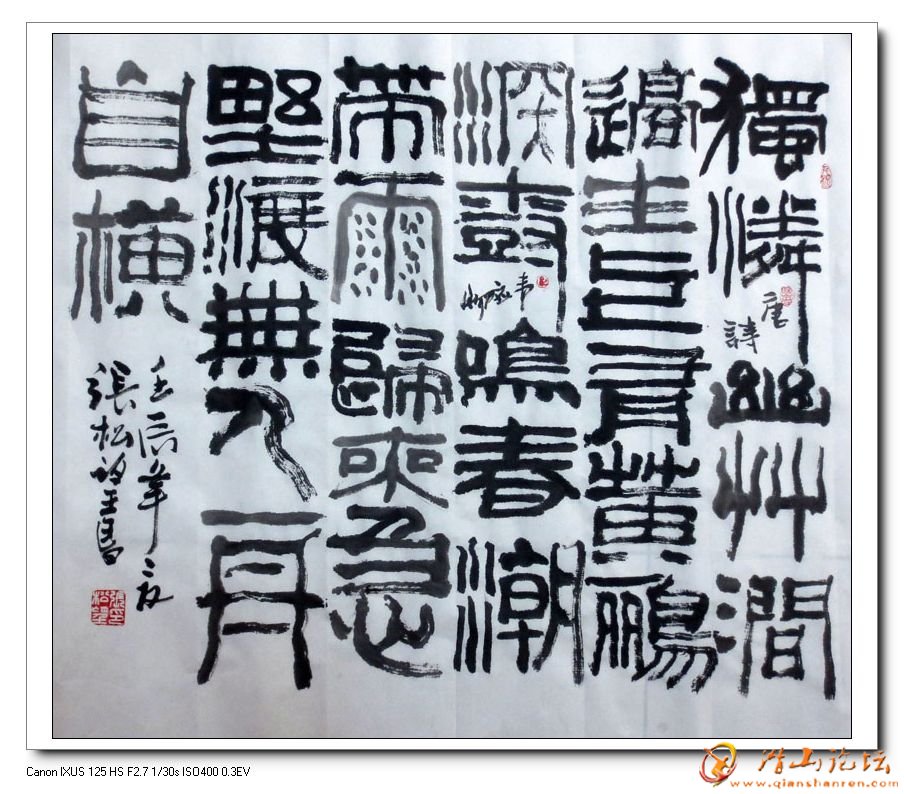 獨憐幽艸澗
唐詩
邊生上有黃鸝
深樹鳴春潮
韋應物
帶雨歸來急
野渡無人舟
自橫
壬辰年
張松
Canon IXUS 125 HS F2.7 1/30s ISO400 0.3EV
潜山论坛
www.qianshanren.com